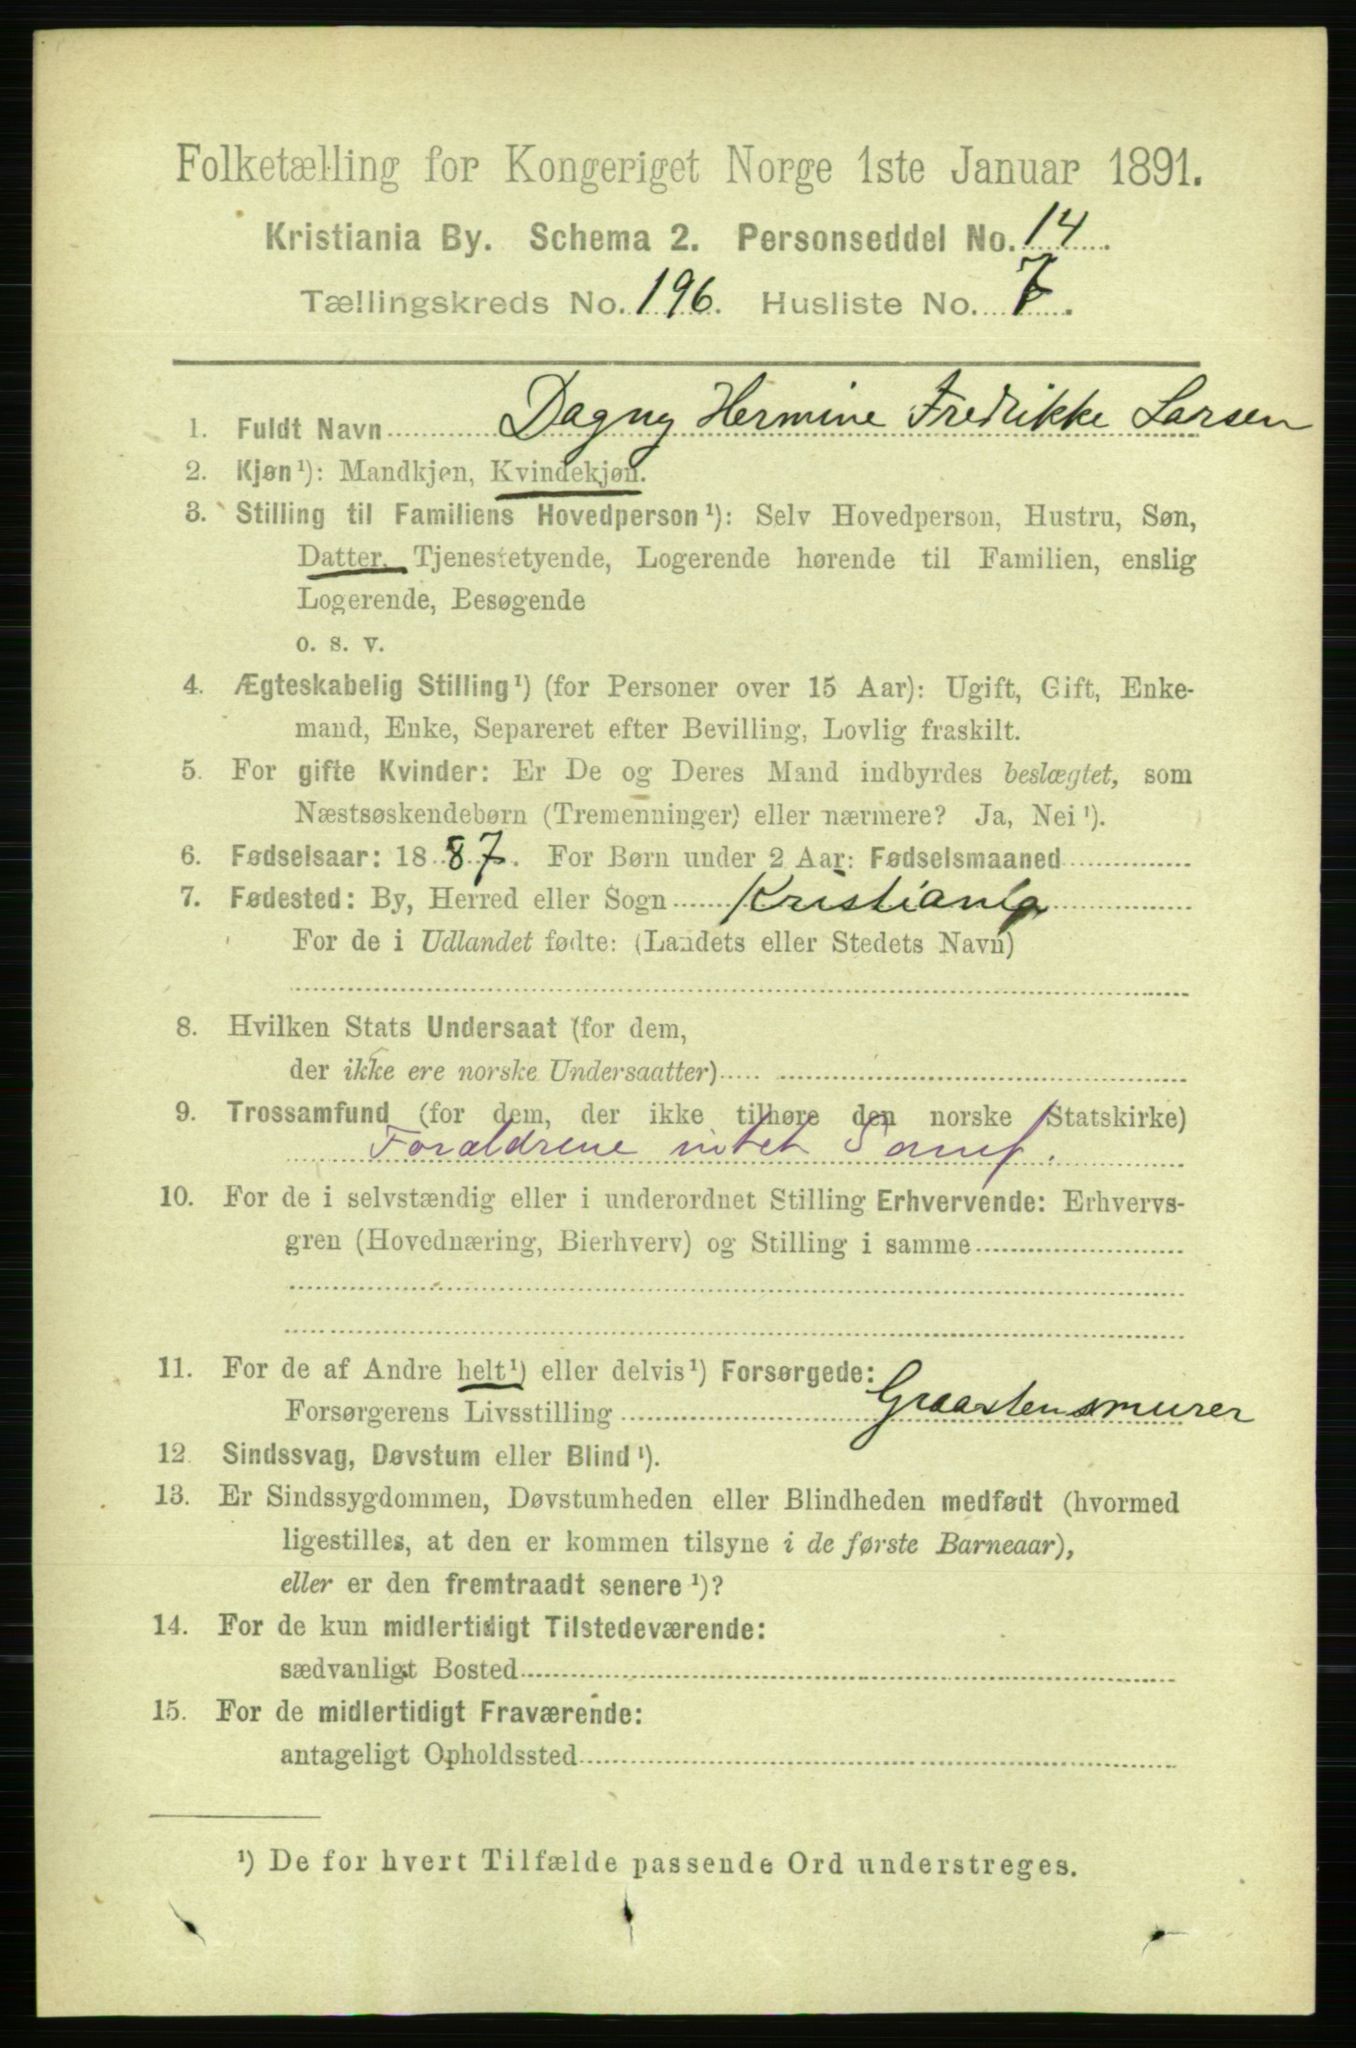 Folketælling for Kongeriget Norge 1ste Januar 1891.
Kristiania By. Schema 2. Personseddel No. 14.
Tællingskreds No. 196. Husliste No. 7.
1. Fuldt Navn Dagny Hermine Fredrikke Larsen
2. Kjøn¹): Mandkjøn, Kvindekjøn.
3. Stilling til Familiens Hovedperson¹): Selv Hovedperson, Hustru, Søn,
Datter, Tjenestetyende, Logerende hørende til Familien, enslig
Logerende, Besøgende
o. s. v.
4. Ægteskabelig Stilling¹) (for Personer over 15 Aar): Ugift, Gift, Enke-
mand, Enke, Separeret efter Bevilling, Lovlig fraskilt.
5. For gifte Kvinder: Er De og Deres Mand indbyrdes beslægtet, som
Næstsøskendebørn (Tremenninger) eller nærmere? Ja, Nei¹).
6. Fødselsaar: 1887. For Børn under 2 Aar: Fødselsmaaned
7. Fødested: By, Herred eller Sogn Kristiania
For de i Udlandet fødte: (Landets eller Stedets Navn)
8. Hvilken Stats Undersaat (for dem,
der ikke ere norske Undersaatter)
9. Trossamfund (for dem, der ikke tilhøre den norske Statskirke)
Forældrene intet Samf.
10. For de i selvstændig eller i underordnet Stilling Erhvervende: Erhvervs-
gren (Hovednæring, Bierhverv) og Stilling i samme
11. For de af Andre helt¹) eller delvis¹) Forsørgede:
Forsørgerens Livsstilling Graastensmurer
12. Sindssvag, Døvstum eller Blind¹).
13. Er Sindssygdommen, Døvstumheden eller Blindheden medfødt (hvormed
ligestilles, at den er kommen tilsyne i de første Barneaar),
eller er den fremtraadt senere¹)?
14. For de kun midlertidigt Tilstedeværende:
sædvanligt Bosted
15. For de midlertidigt Fraværende:
antageligt Opholdssted
¹) De for hvert Tilfælde passende Ord understreges.